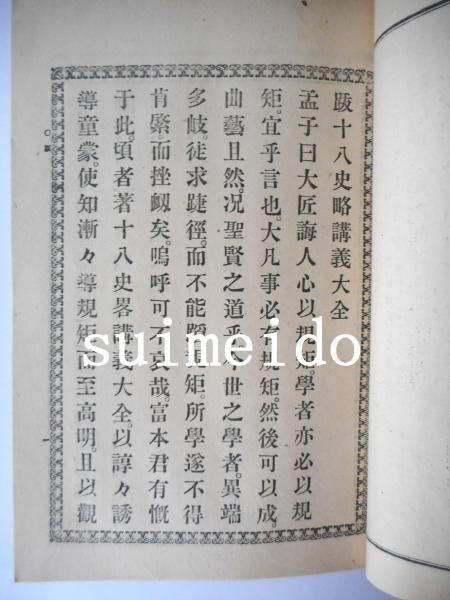 跋十八史略講義大全
孟子曰大匠誨人心以規矩。學者亦必以規
矩。宜乎言也。大凡事必有規矩。然後可以成。
曲藝且然。况聖賢之道乎。今世之學者。異端
多岐。徒求踺徑。而不能蹈規矩。所學遂不得
肯綮。而挫衂矣。嗚呼可不哀哉。富本君有慨
于此。頃者著十八史畧講義大全。以諄々誘
導童蒙。使知漸々導規矩而至高明。且以觀
suimeido